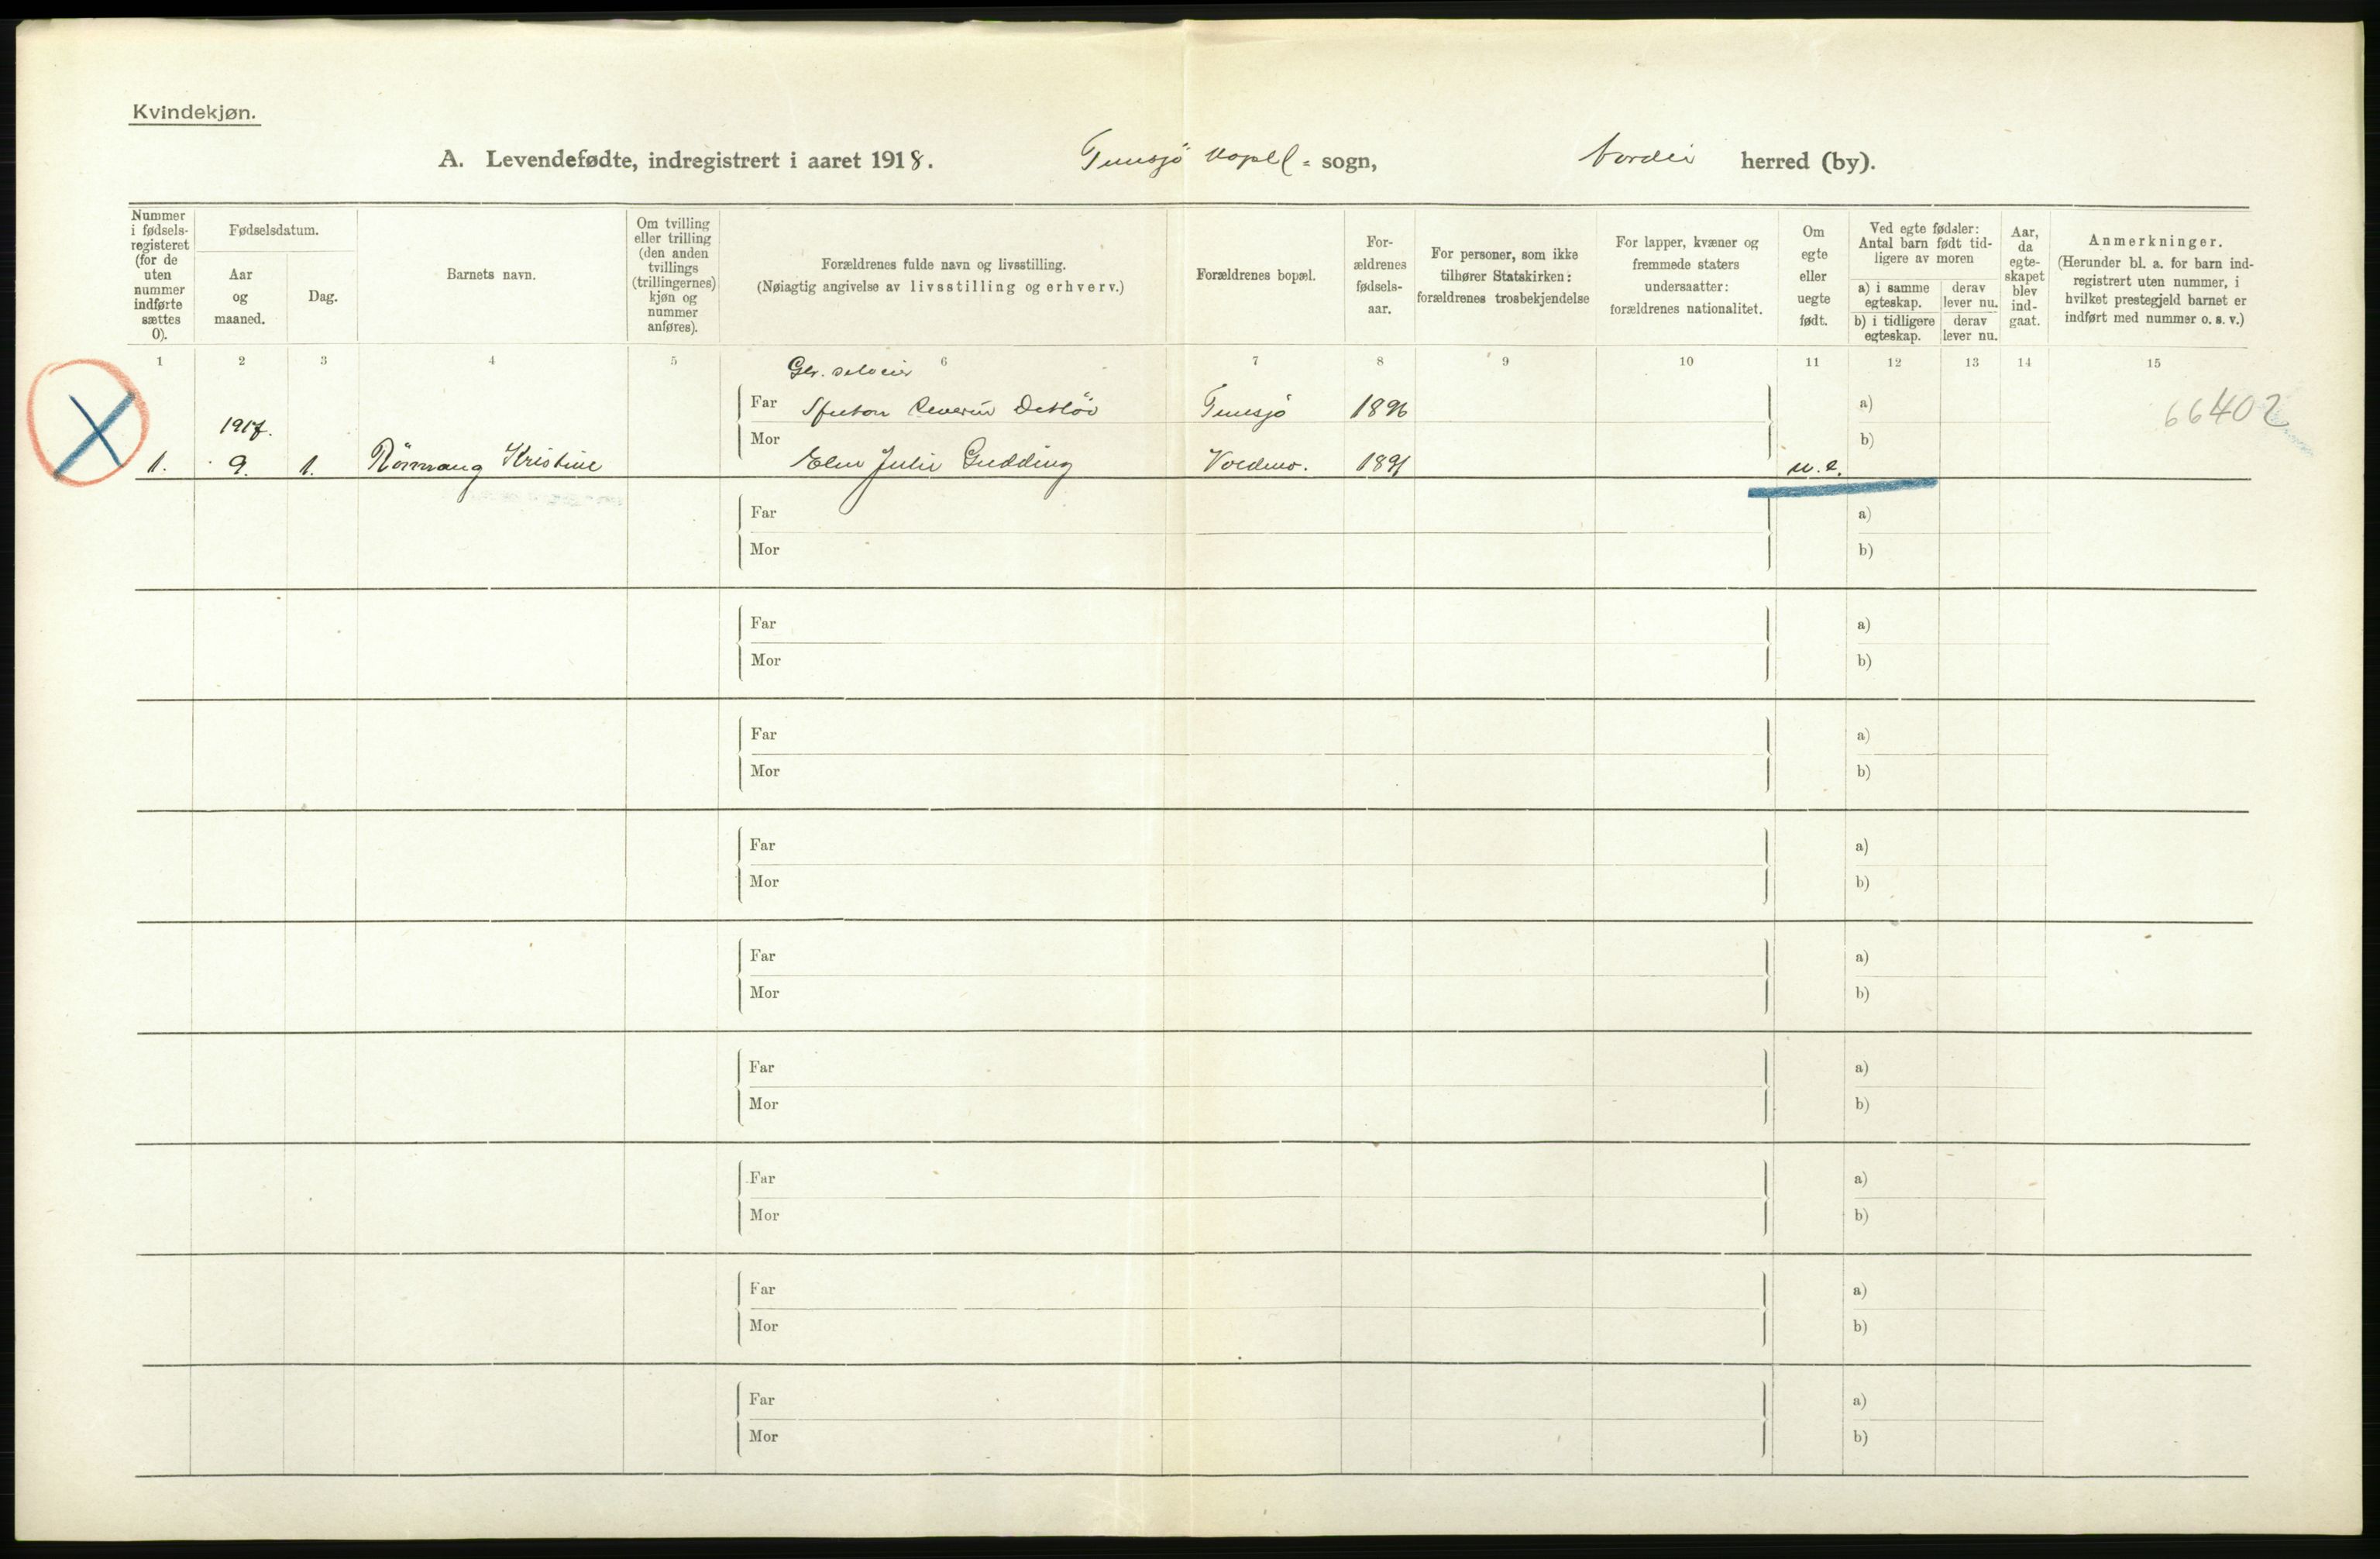 Kvindekjøn.
A. Levendefødte, indregistrert i aaret 1918. Tunsjø kapel - sogn, Nordli herred (by).
Nummer i fødsels-registeret (for de uten nummer indførte sættes 0).
Fødselsdatum.
Aar og maaned.
Dag.
Barnets navn.
Om tvilling eller trilling (den anden tvillings (trillingernes) kjøn og nummer anføres).
Forældrenes fulde navn og livsstilling.
(Nøiagtig angivelse av livsstilling og erhverv.)
Forældrenes bopæl.
For-ældrenes fødsels-aar.
For personer, som ikke tilhører Statskirken: forældrenes trosbekjendelse
For lapper, kvæner og fremmede staters undersaatter: forældrenes nationalitet.
Om egte eller uegte født.
Ved egte fødsler: Antal barn født tid-ligere av moren
a) i samme egteskap.
derav lever nu.
b) i tidligere egteskap.
derav lever nu.
Aar, da egte-skapet blev ind-gaat.
Anmerkninger.
(Herunder bl. a. for barn ind-registrert uten nummer, i hvilket prestegjeld barnet er indført med nummer o. s. v.)
1 2 3 4 5 6 7 8 9 10 11 12 13 14 15
Gbr. selveier
Far Detlöv Tunsjö 1896 a) 66402
1917.
Mor b)
1. 9. 1. Rönnaug Kristine Elen Julie Gudding 1891 u. e.
Far a)
Mor b)
Far a)
Mor b)
Far a)
Mor b)
Far a)
Mor b)
Far a)
Mor b)
Far a)
Mor b)
Far a)
Mor b)
Far a)
Mor b)
Far a)
Mor b)